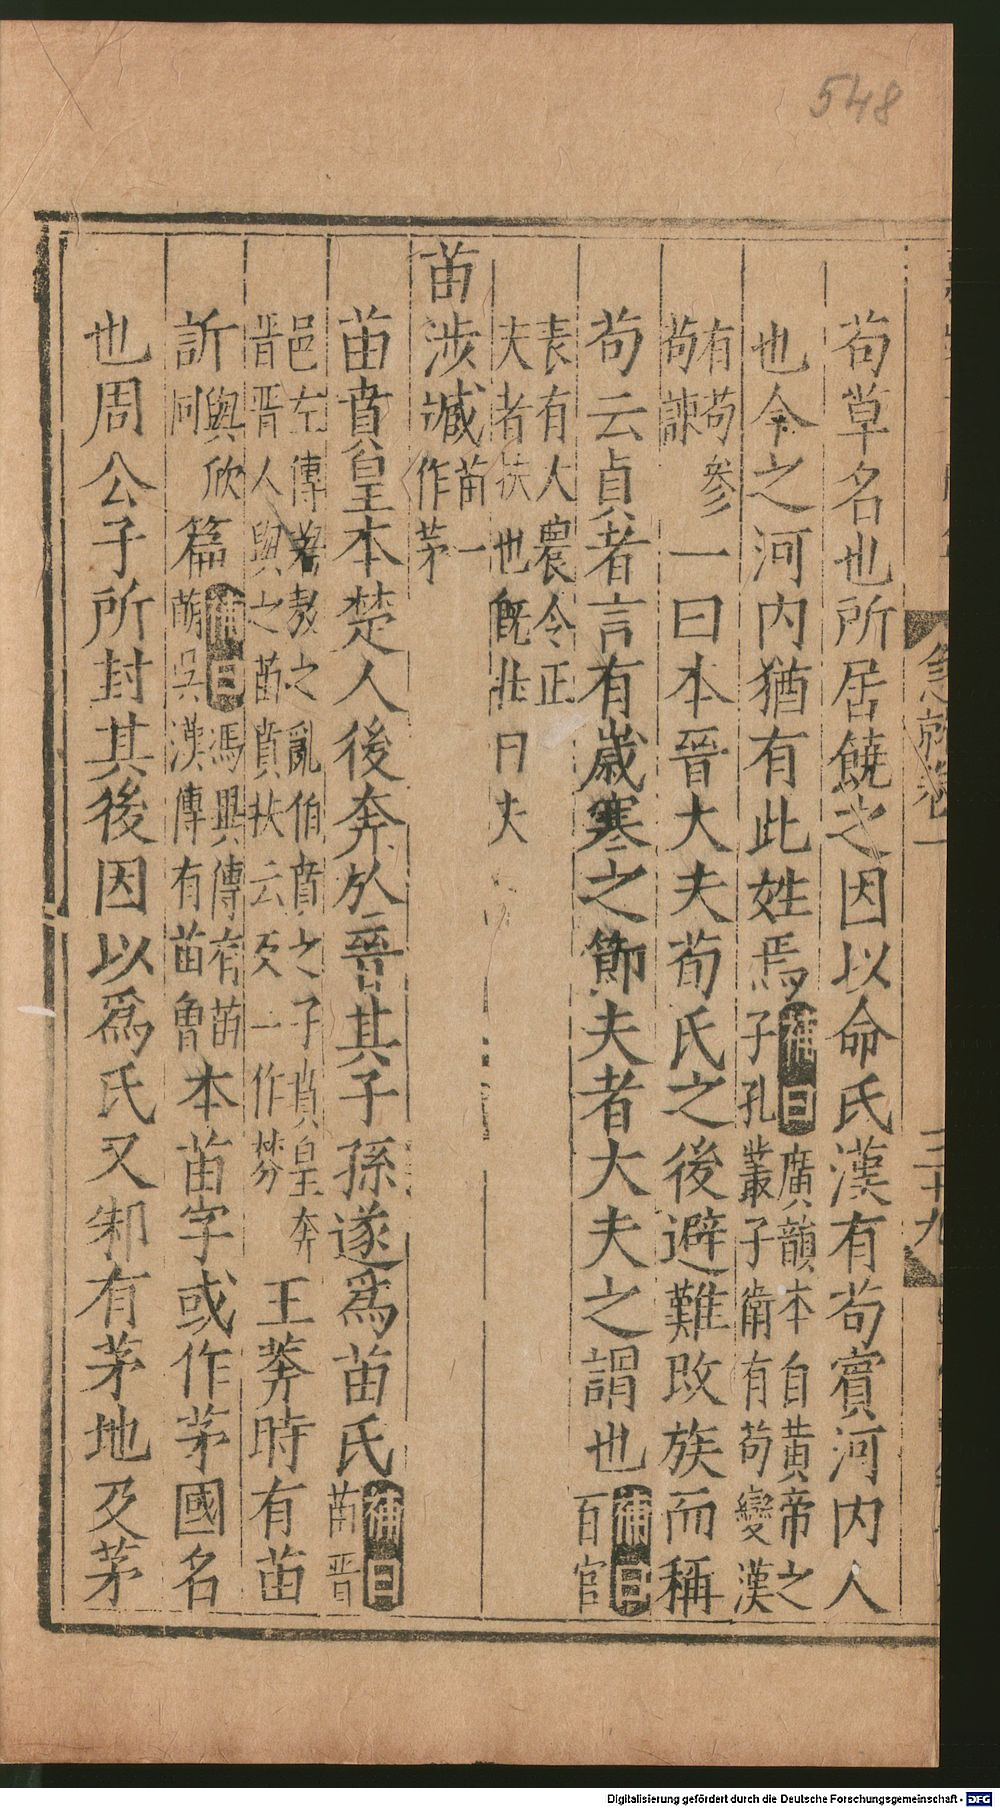 548
急就卷一
三十九
茍草名也所居饒之因以命氏漢有茍賓河內人
也今之河內猶有此姓焉補曰廣韻本自黃帝之
子孔叢子衛有茍變漢
有茍參
茍諫一曰本晉大夫荀氏之後避難改族而稱
茍云貞者言有歲寒之節夫者大夫之謂也補曰百官
表有大農令正
夫者扶也既壯曰夫
苗涉臧苗一
作茅
苗賁皇本楚人後奔於晉其子孫遂為苗氏補曰苗晉
邑左傳若敖之亂伯賁之子賁皇奔
晉晉人與之苗賁扶云反一作棼王莽時有苗
訢與欣
同篇補曰馮異傳有苗
萌吳漢傳有苗魯本苗字或作茅國名
也周公子所封其後因以為氏又邾有茅地及茅
Digitalisierung gefördert durch die Deutsche Forschungsgemeinschaft - DFG